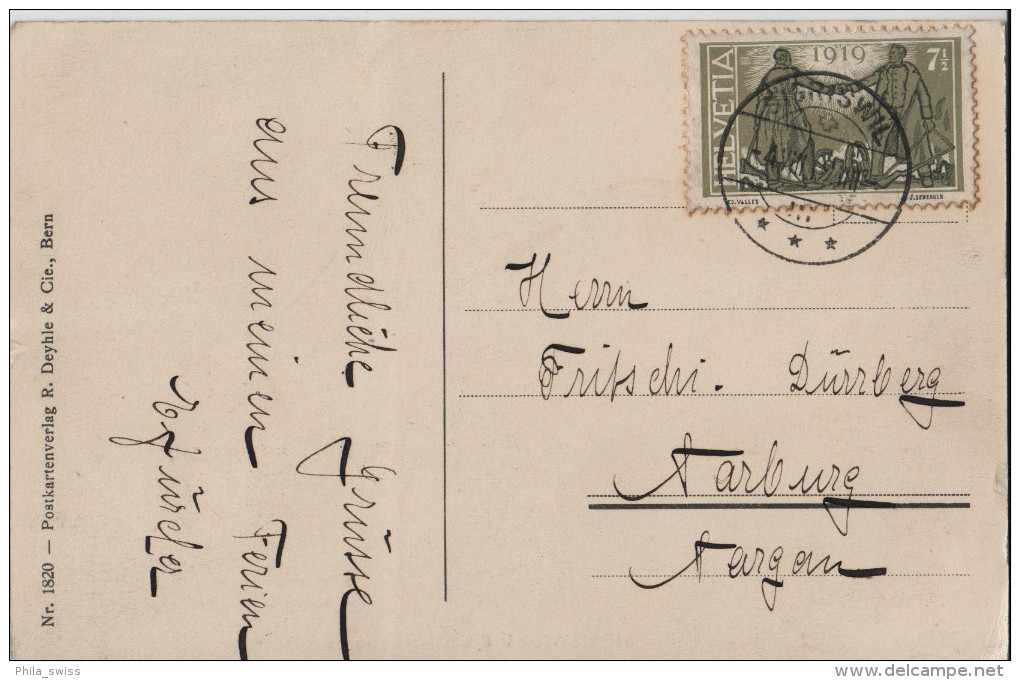 Nr. 1820 — Postkartenverlag R. Deyhle & Cie., Bern
Freundliche Grüsse
aus meinen Ferien
HELVETIA
1919
7½
ED. VALLET
* * *
Herrn
Fritschi. Dürrberg
Aarburg
Aargau
Phila_swiss
www.delcampe.net